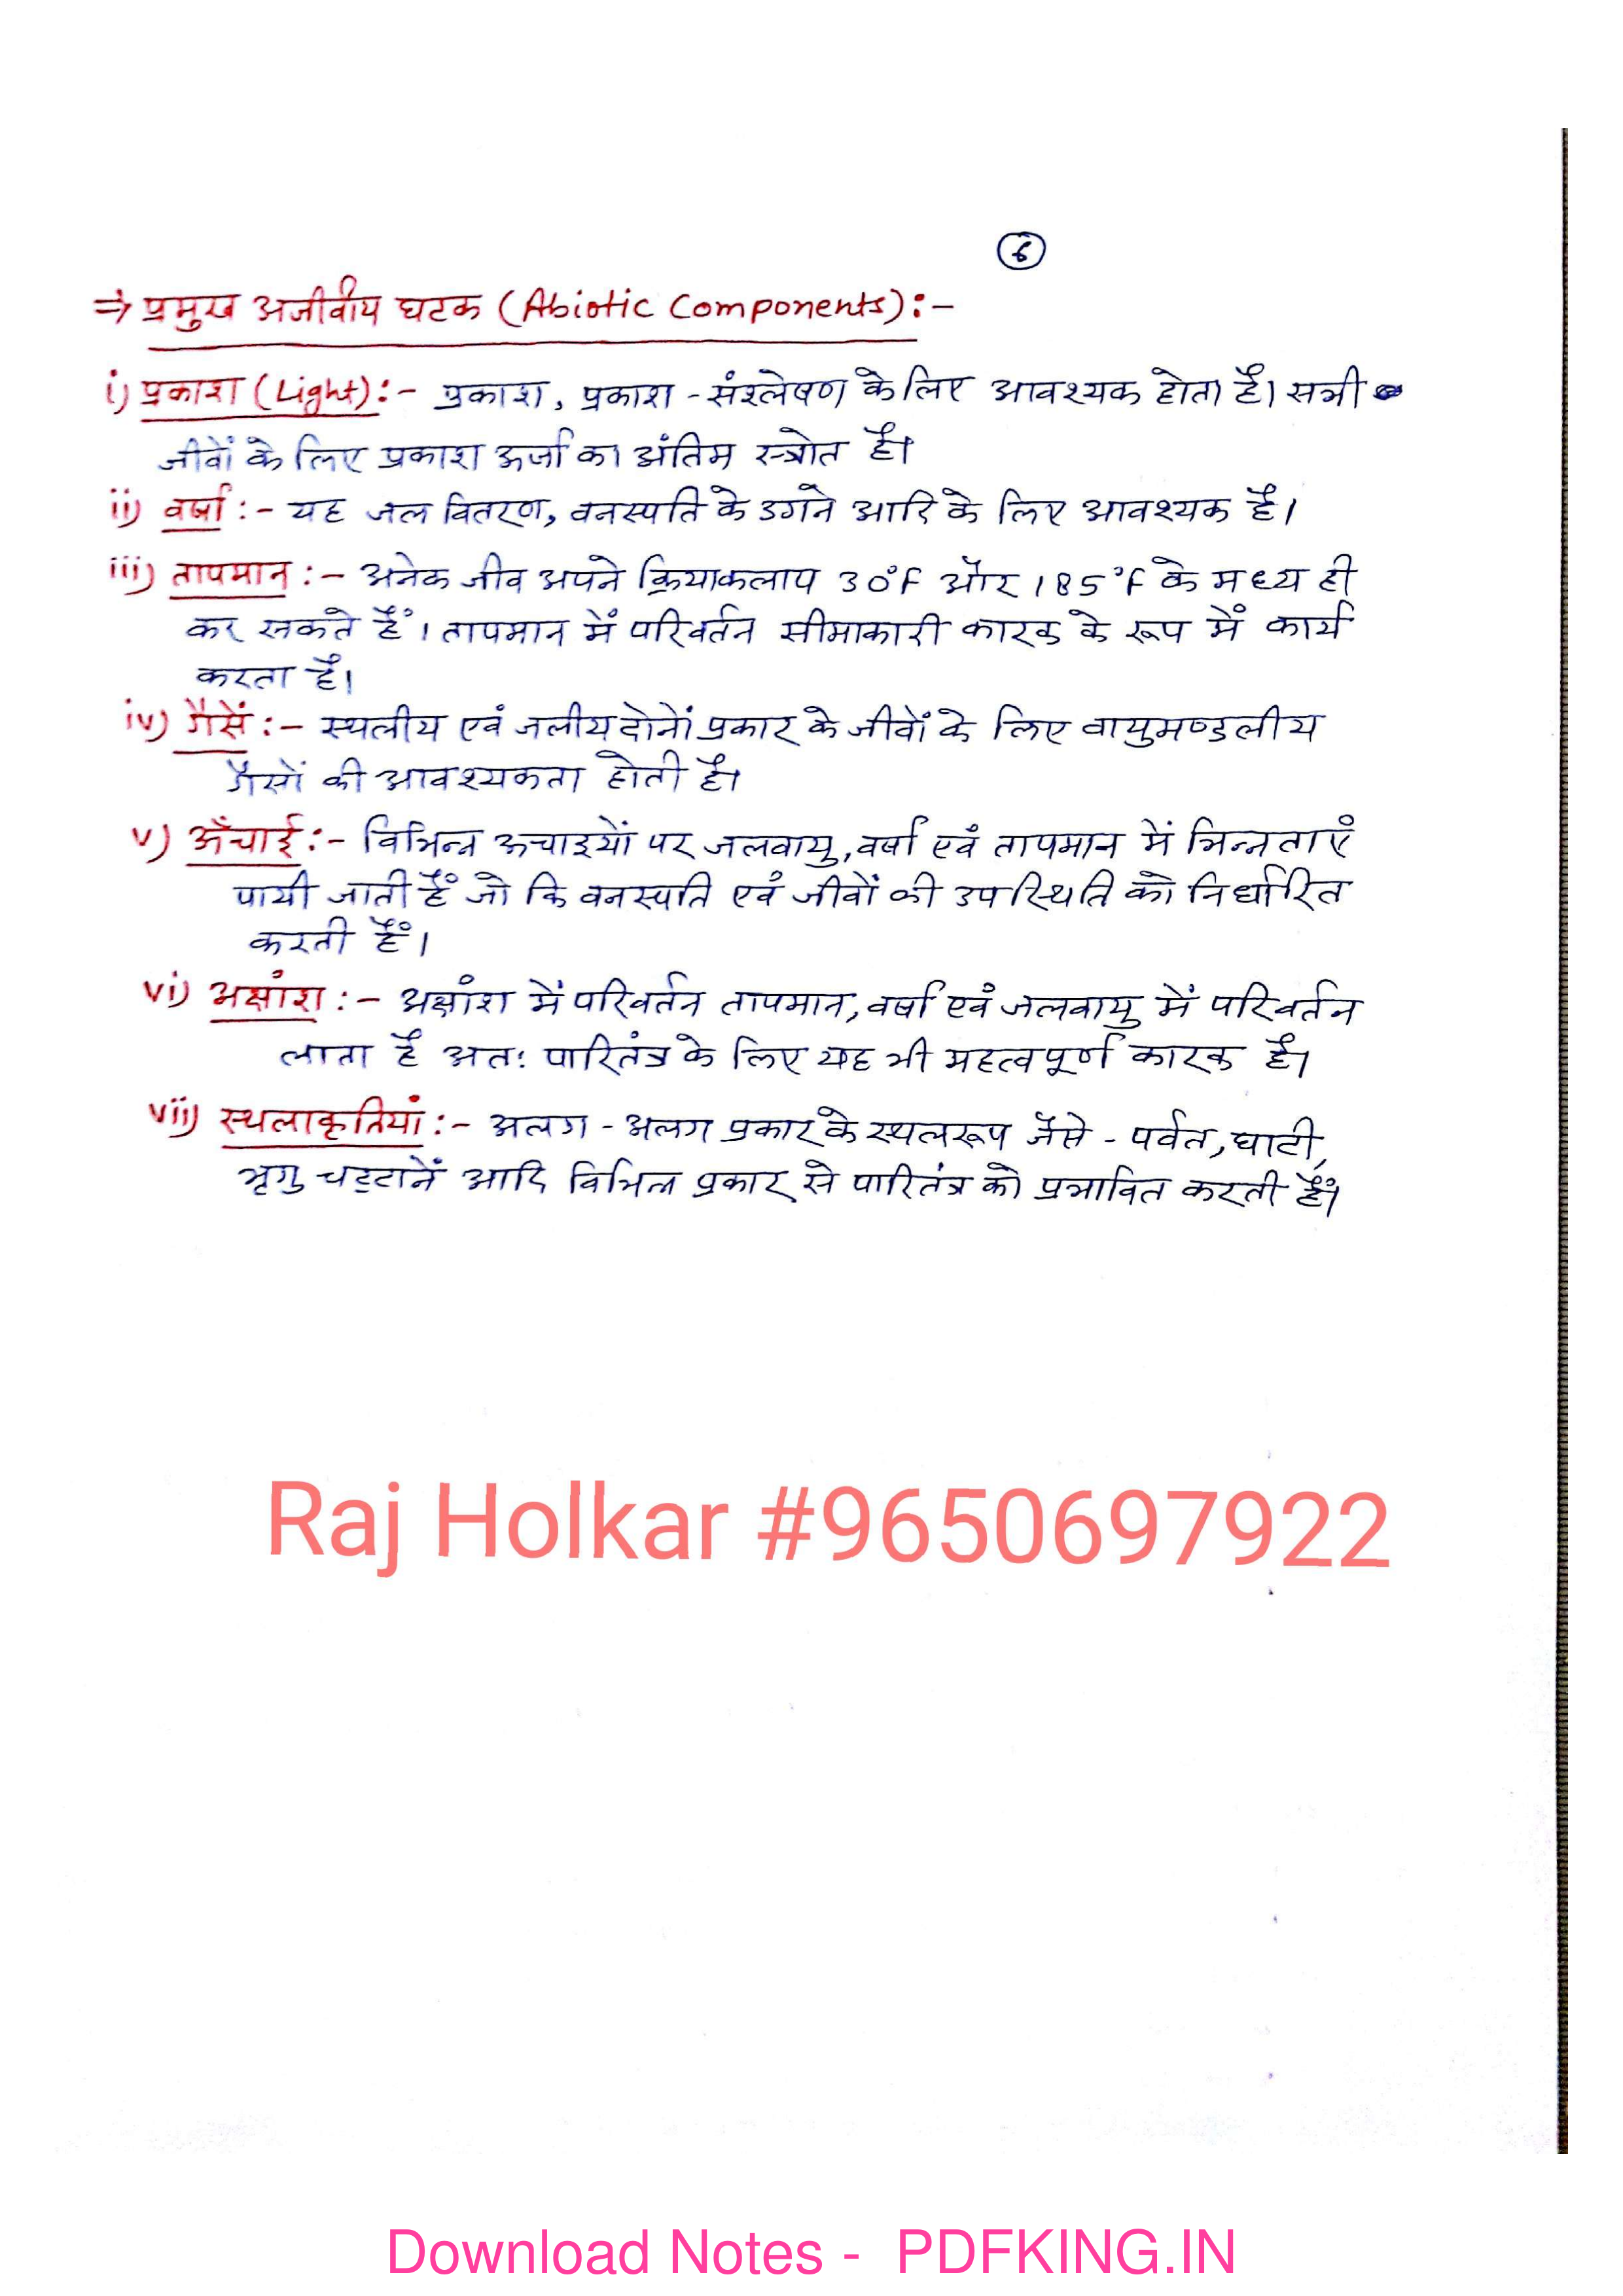 6
⇒ प्रमुख अजीवीय घटक (Abiotic Components):-
i) प्रकाश (Light):- प्रकाश, प्रकाश-संश्लेषण के लिए आवश्यक होता है। सभी
जीवों के लिए प्रकाश ऊर्जा का अंतिम स्त्रोत है।
ii) वर्षा :- यह जल वितरण, वनस्पति के उगने आदि के लिए आवश्यक है।
iii) तापमान :- अनेक जीव अपने क्रियाकलाप 30°F और 185°F के मध्य ही
कर सकते हैं। तापमान में परिवर्तन सीमाकारी कारक के रूप में कार्य
करता है।
iv) गैसें :- स्थलीय एवं जलीय दोनों प्रकार के जीवों के लिए वायुमण्डलीय
गैसों की आवश्यकता होती है।
v) ऊँचाई :- विभिन्न ऊचाइयों पर जलवायु, वर्षा एवं तापमान में भिन्नताएं
पायी जाती हैं जो कि वनस्पति एवं जीवों की उपस्थिति को निर्धारित
करती हैं।
vi) अक्षांश :- अक्षांश में परिवर्तन तापमान, वर्षा एवं जलवायु में परिवर्तन
लाता है अतः पारितंत्र के लिए यह भी महत्वपूर्ण कारक है।
vii) स्थलाकृतियां :- अलग-अलग प्रकार के स्थलरूप जैसे - पर्वत, घाटी,
भृगु चट्टानें आदि विभिन्न प्रकार से पारितंत्र को प्रभावित करती हैं।
Raj Holkar #9650697922
Download Notes - PDFKING.IN